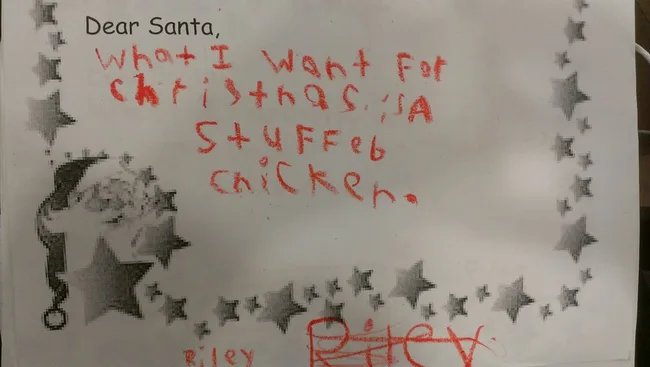 Dear Santa,
What I Want For
christhas. is A
stuffeb
chicken.
Riley Riley